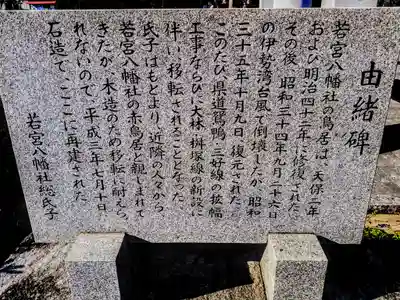 由緒碑
若宮八幡社の鳥居は、天保二年
および明治四十二年に修復された。
その後、昭和三十四年九月二十六日
の伊勢湾台風で倒壊したが、昭和
三十五年十月九日復元された。
このたび、県道鴛鴨、三好線の拡幅
工事ならびに大林、桝塚線の新設に
伴い移転されることとなった。
氏子はもとより、近隣の人々から
若宮八幡社の赤鳥居と親しまれて
きたが、木造のため移転に耐えら
れないので、平成三年七月十日
石造で、ここに再建された。
若宮八幡社総氏子